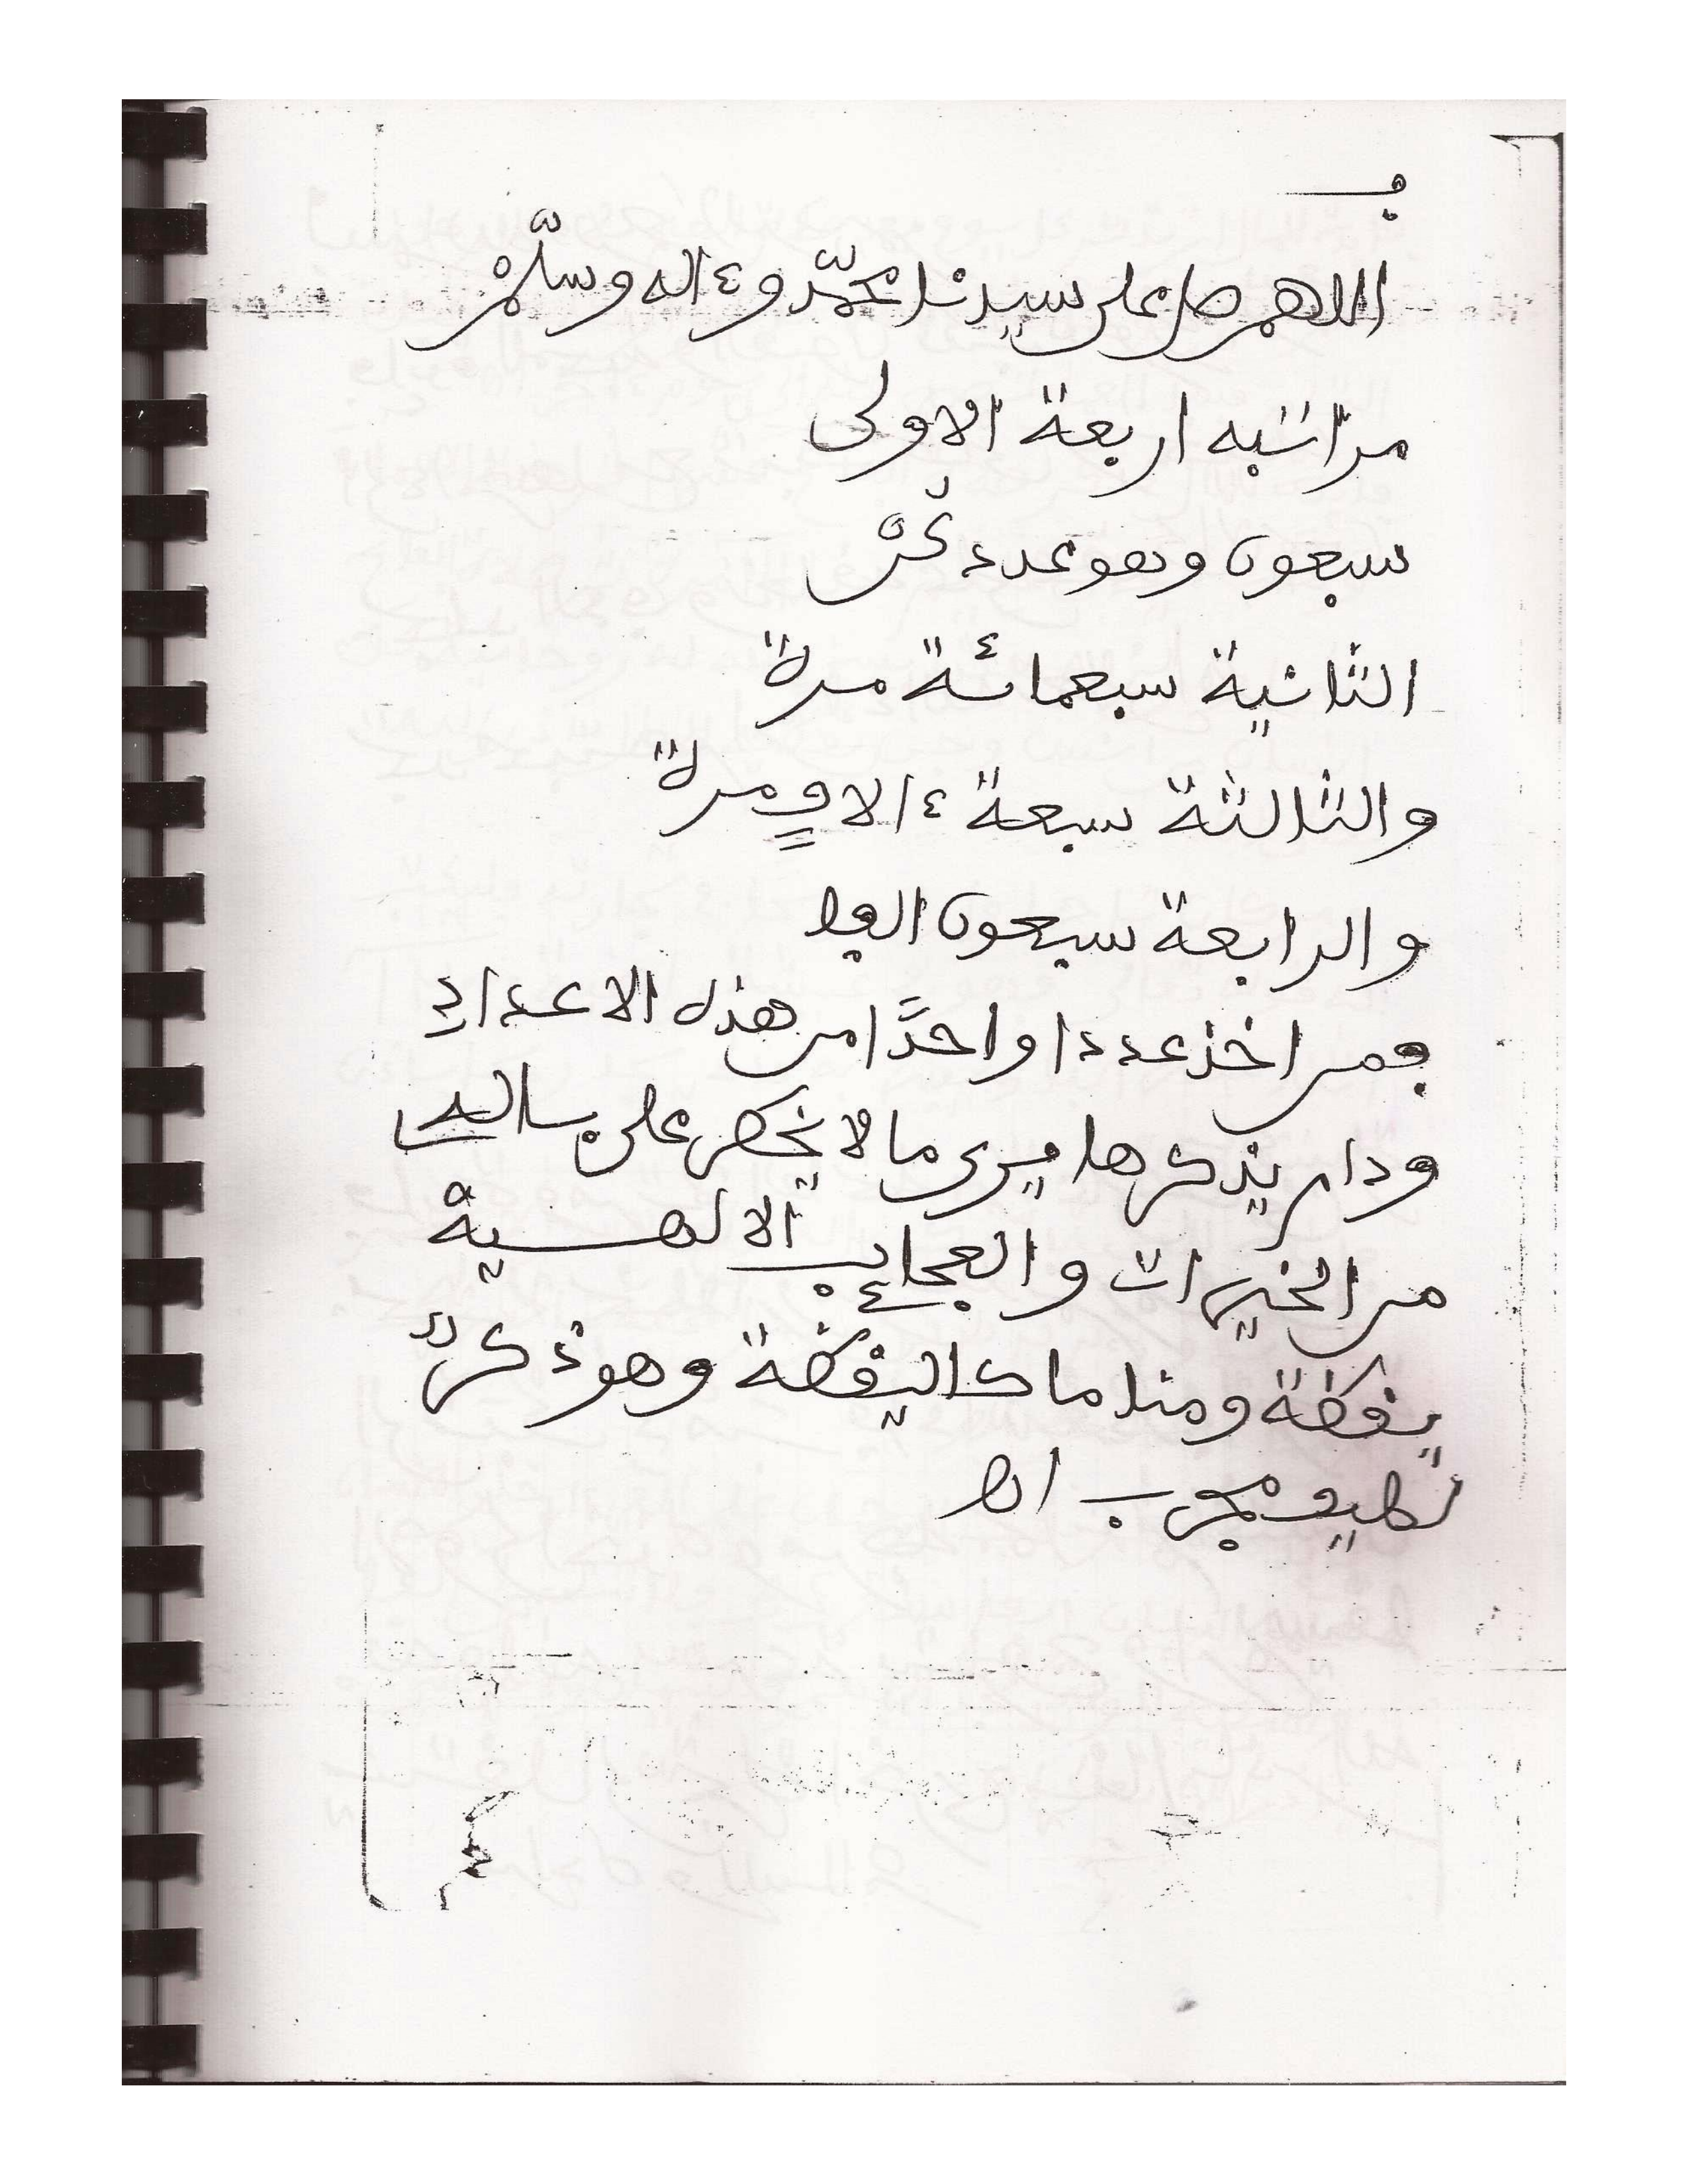 في
اللهم صل على سيدنا محمّد وءاله وسلّم
مراتبه اربعة الاولى
سبعون وهو عدد كن
الثانية سبعمائة مرة
والثالثة سبعة ءالاف مرة
والرابعة سبعون الفا
فمن اخذ عددا واحدًا من هذه الاعداد
ودام يذكرها فيرى ما لا يخطر على بساله
من الخيرات والعجايب الالهية
يقظة ومناما كاليقظة وهو ذكر
لطيف مجرب اه